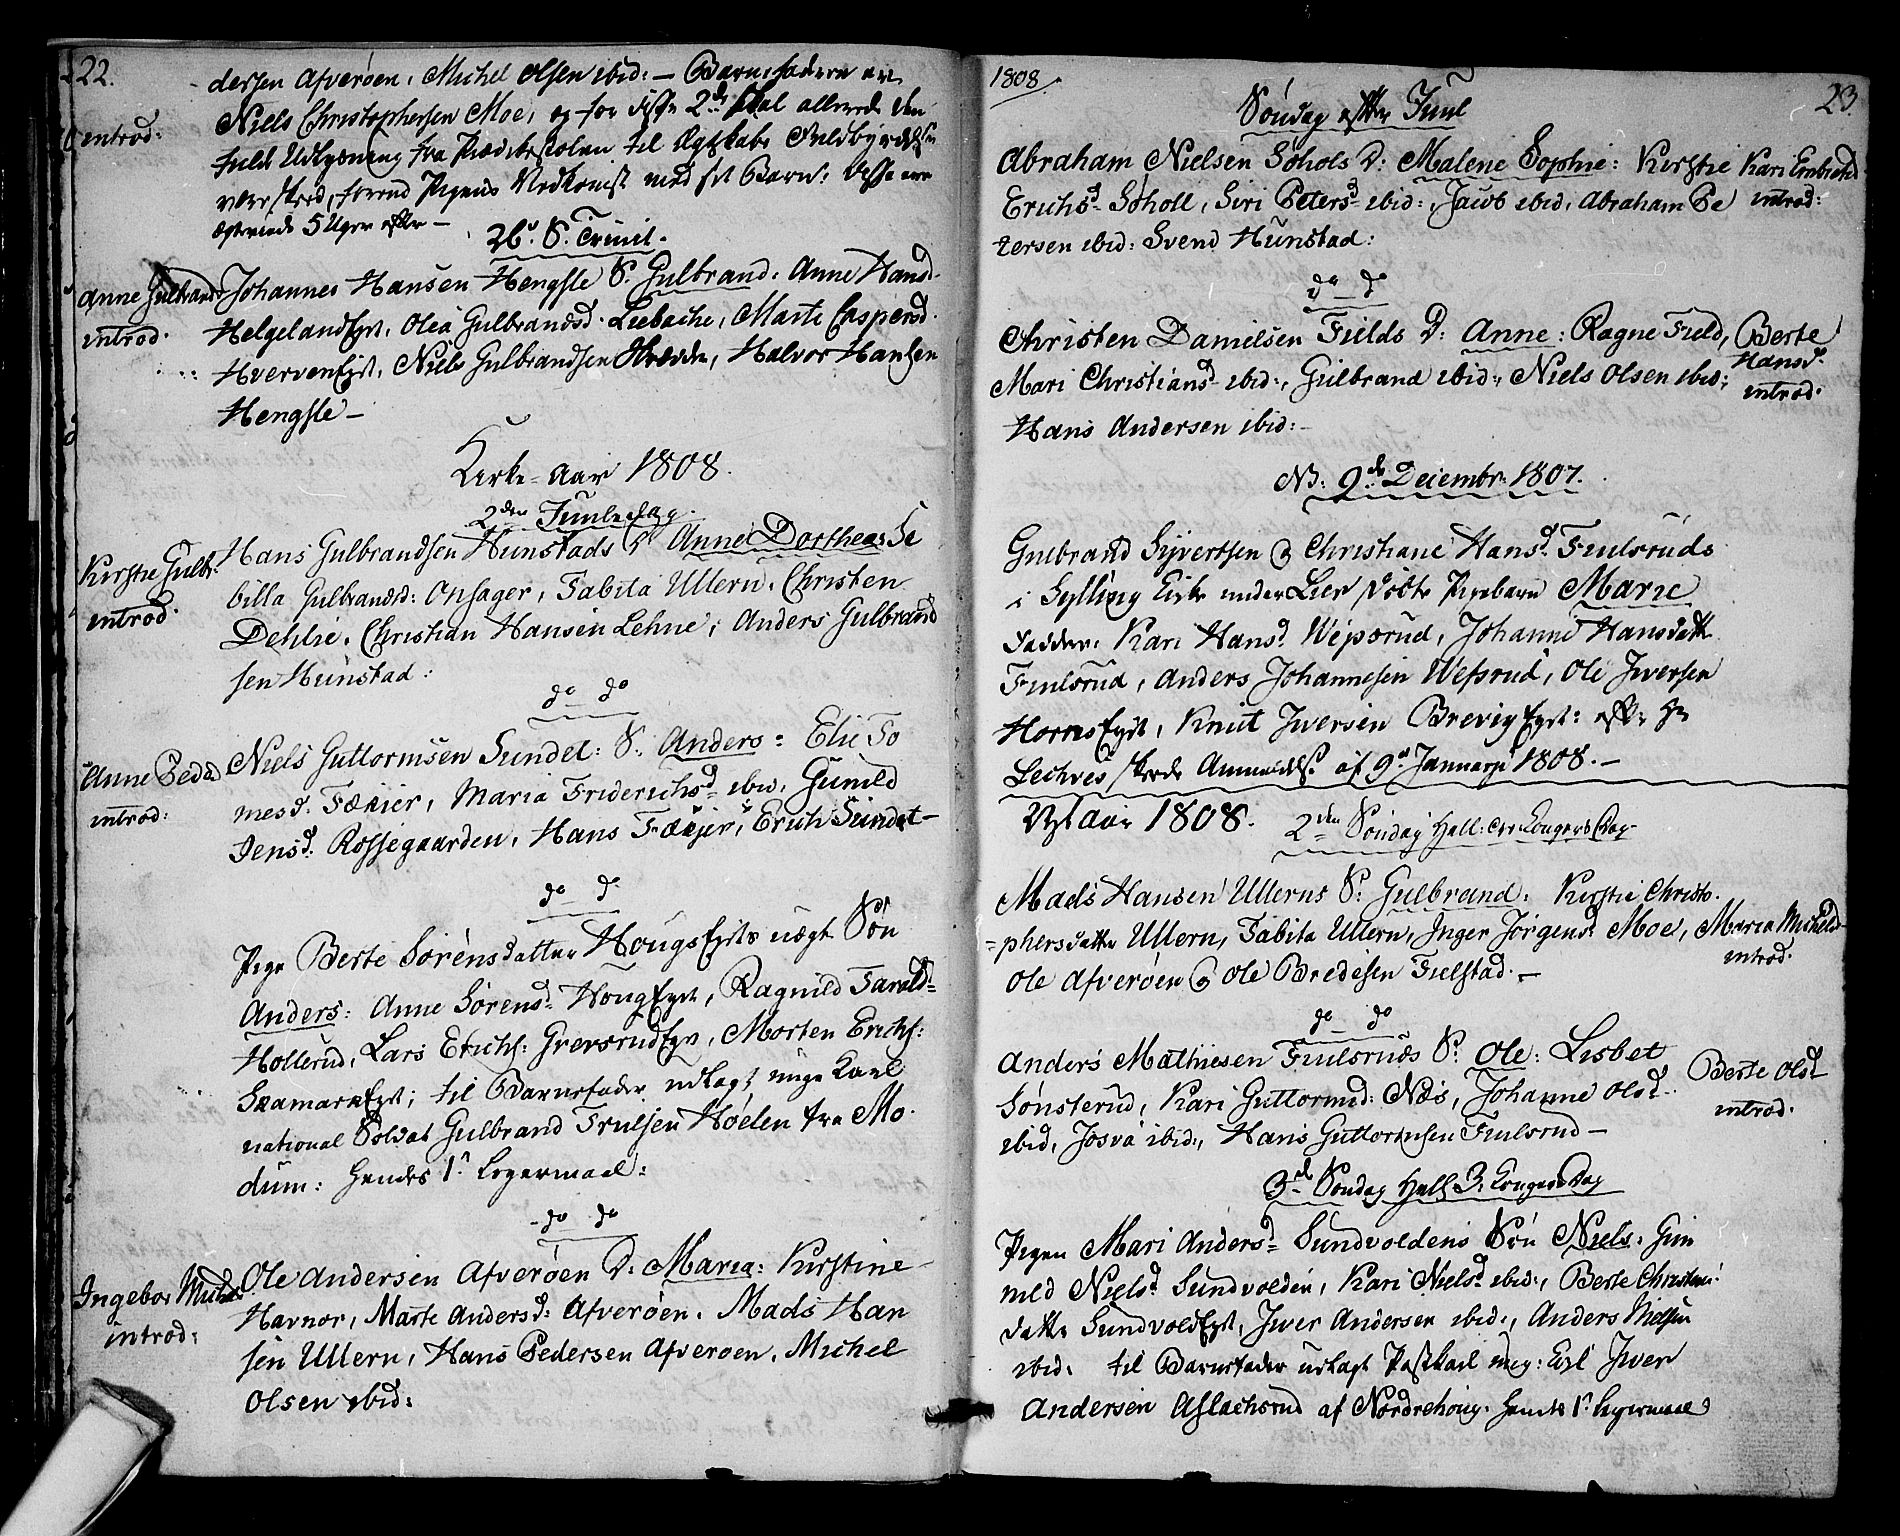 22.
dersen Afverøen, Michel Olsen ibid: — Barnefadern er
introd:
Niels Christophersen Moe, og for disse 2de skal allerede den
fulde Udlysning fra Prædikestolen til Ægteskabs
være skeed, førend Pigens Nedkomst med sit Barn:
5 Uger efter —
26. S. Trinit.
Anne Gulbrandsd
introd.
Johannes Hansen Hengsle S. Gulbrand: Anne Hansd.
HelgelandEyet, Olea Gulbrandsd. Leebache, Marte Caspersd.
HvervenEyet, Niels Gulbrandsen Hvædde, Halvor Hansen
Hengsle —
Kirke-Aar 1808.
2den Juuledag.
Kirstie Gulbr.
introd.
Hans Gulbrandsen Hunstads D. Anne Dorthea: Se
billa Gulbrandsd: Opsager, Tabita Ullern, Christen
Dehlie, Christian Hansen Lehne, Anders Gulbrand
sen Hunstad:
do _ do
Anne Pedd
introd:
Niels Guttormsen Sundet: S. Anders: Elie To
mesd. Fækjer, Maria Friderichsd ibid, Gunild
Jensd. Rossegaarden, Hans Fækjer, Erich Sundet —
do _ do
Pige Berte Sørensdatter HougsEyets uægte Søn
Anders: Anne Sørensd. HougEyet, Ragnild Tarald-
Hollerud, Lars Erichs: GreversrudEyet, Morten Erichs:
til Barnefader udlagt unge Karl
national Soldat Gulbrand Trulsen Høelen fra Mo.
dum: hendes 1ste Legermaal:
do _ do
Ingebor Michelsd.
introd:
Ole Andersen Afverøen D: Maria: Kirstine
Havnor, Marte Andersd: Afverøen, Mads Han
sen Ullern, Hans Pedersen Afverøen, Michel
Olsen ibid:
1808.
23.
Søndag efter Juul
Abraham Nielsen Søhols D: Malene Sophie: Kirstie
Erichsd. Søholl, Siri Petersd ibid:, Jacob ibid, Abraham Pe
tersen ibid: Svend Hunstad:
Kari
introd:
do _ do
Christen Danielsen Fields D: Anne: Ragne Field,
Mari Christiansd ibid:, Gulbrand ibid:, Niels Olsen ibid:
Hans Andersen ibid: —
Berte
Hansd.
introd.
NB: 9de Decembr: 1807.
Gulbrand Syvertsen & Christiane Hansd. Fiulsruds
i Sylling Kirke under Lier døbte Pigebarn Marie
Fadder: Kari Hansd. Wepsrud, Johanne Hansdatt
Fiulsrud, Anders Johannesen Wepsrud, Ole Iversen
HornsEyet, Knut Iversen BrevigEyet: efter Hr
Lechves skeede Anmeldelse af 9de Januarji 1808. —
Nyt Aar 1808.
2den Søndag Hell: tre Kongers Dag
Mads Hansen Ullerns S. Gulbrand: Kirstie Christo-
phersdatter Ullern, Tabita Ullern, Inger Jørgensd. Moe,
Ole Afverøen & Ole Bredesen Fielstad. —
Maria Michelsd
introd.
do _ do
Anders Mathiesen Fiulsruds S. Ole: Lisbet
Sønsterud, Kari Guttormsd: Næs, Johanne Olsd.
ibid, Josva ibid:, Hans Guttormsen Fiulsrud —
Berte Olsd
introd.
3de Søndag Hell. 3 Kongers Dag
Pigen Mari Andersd. Sundvoldens Søn Niels: Gun
nild Nielsd. Sundvolden, Kari Nielsd. ibid:, Berte Christens
datter SundvoldEyet, Iver Andersen ibid:, Anders Nielsen
ibid: til Barnefader udlagt Iver
Andersen Aslachsrud af Nordrehoug. hendes 1ste Legermaal